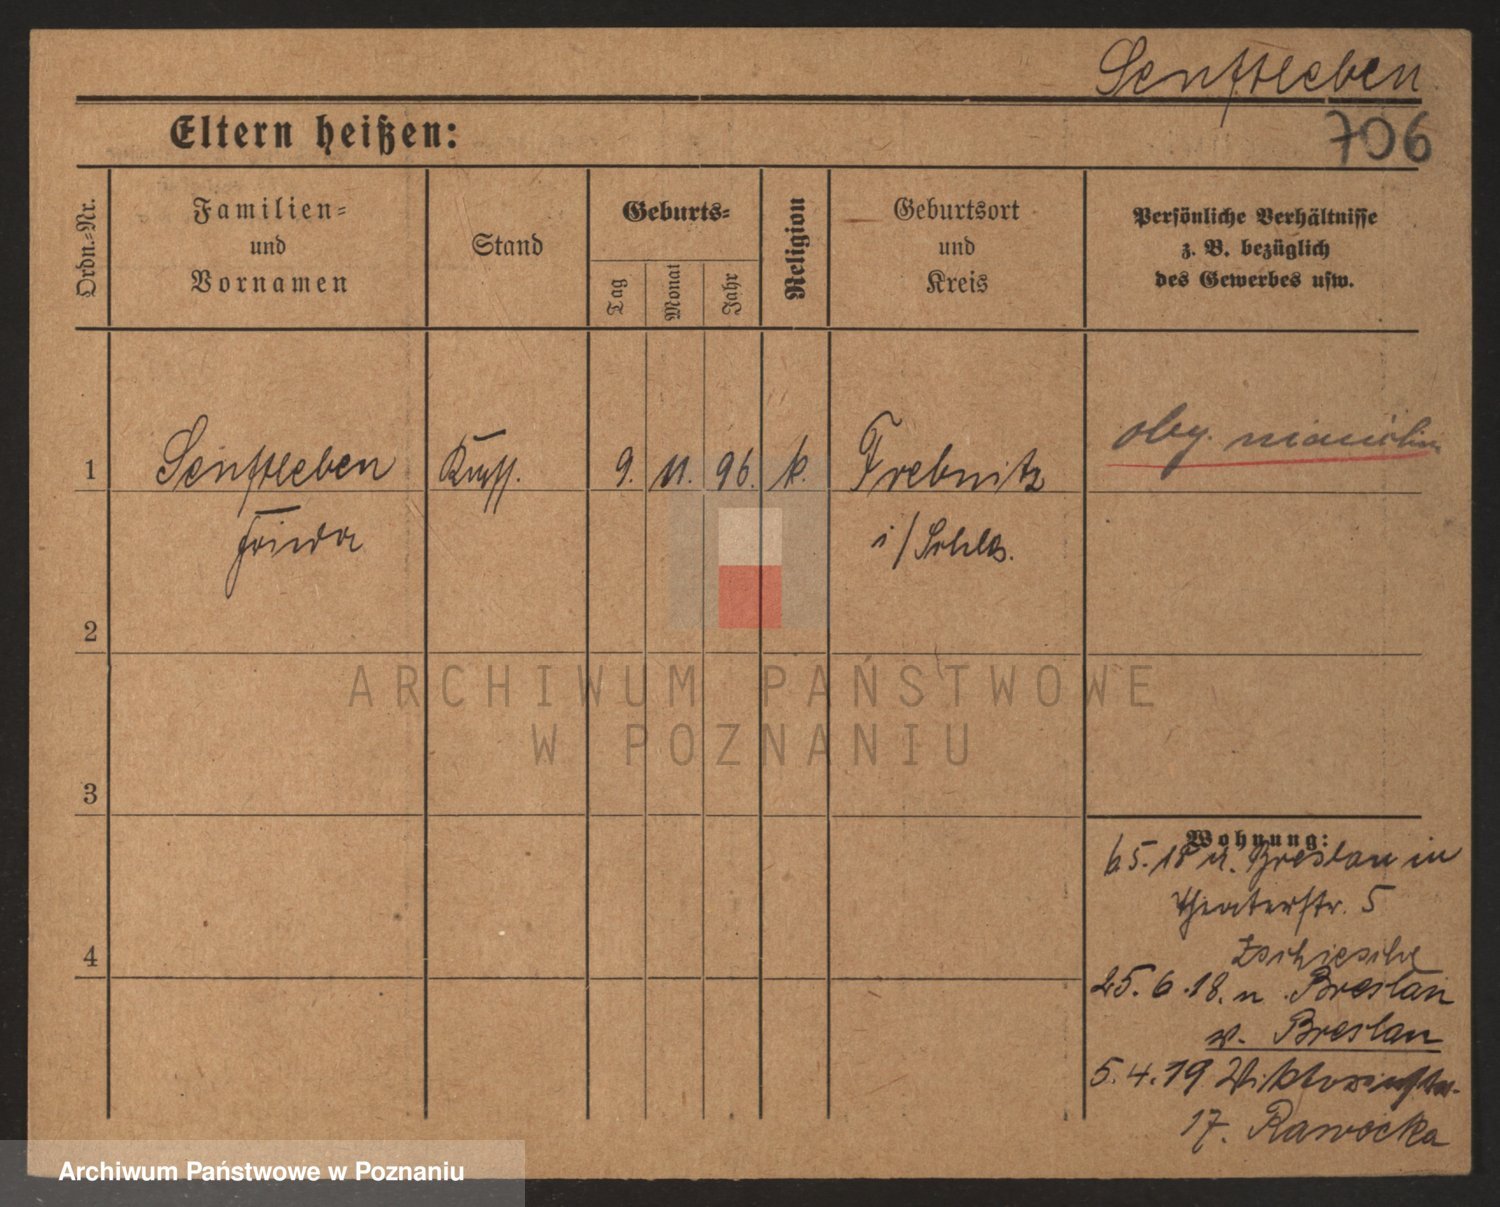 Senftleben
706
Eltern heißen:
Ordn.-Nr.
Familien-
und
Vornamen
Stand
Geburts-
Tag
Monat
Jahr
Religion
Geburtsort
und
Kreis
Persönliche Verhältnisse
z. B. bezüglich
des Gewerbes usw.
1 Senftleben 9. 11. 96. k. Trebnitz
Frieda i/Schles.
oby.
2
3
4
Wohnung:
6.5.18 n. Breslau in
Theaterstr. 5
Zschiesche
25.6.18. n Breslau
v. Breslau
5.4.19 Viktoriastr.
17. Rawecka
ARCHIWUM PAŃSTWOWE
W POZNANIU
Archiwum Państwowe w Poznaniu